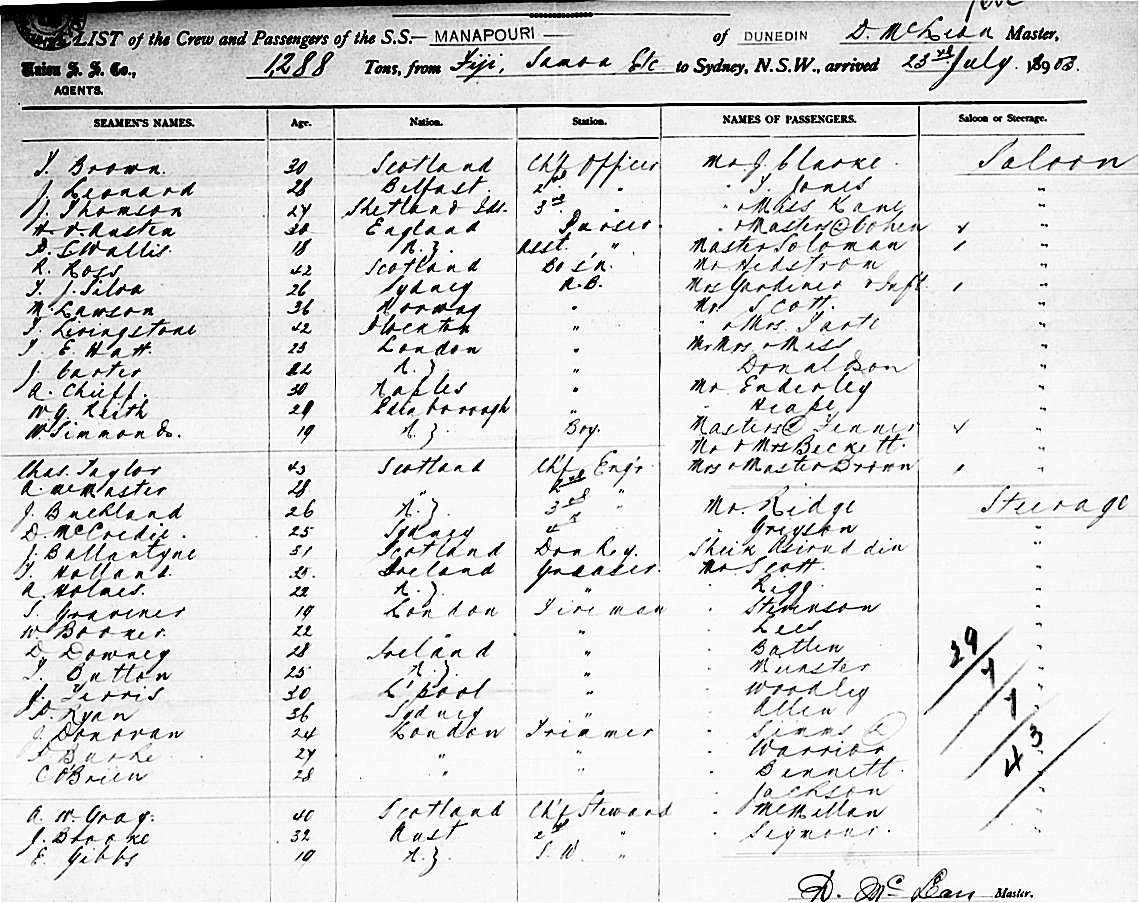 LIST of the Crew and Passengers of the S.S.— MANAPOURI — of DUNEDIN D. McLean Master,
Union S. S. Co., 1,288 Tons, from Fiji, Samoa Etc to Sydney, N.S.W., arrived 23rd July 1903
AGENTS.
SEAMEN'S NAMES. Age. Nation. Station. NAMES OF PASSENGERS. Saloon or Steerage.
T. Brown. 30 Scotland Chf Officer Mr J. Clarke. Saloon
J. Leonard 28 Belfast. 2nd " " T. Jones "
J. Thomson 27 Shetland Ids. 3rd " " & Miss Kane "
Austin 30 England Purser. " & Masters (2) Cohen "
D. S. Wallis. 18 N.Z. Asst. " Master Soloman "
R. Ross 42 Scotland Bo's'n. Mr Hedstrom "
T. J. Silva 26 Sydney A.B. Mrs Gardiner & Inft. "
N. Lawson 36 Norway " Mr. Scott. "
T. Livingstone 42 " " & Mrs. Tarte "
T. E. Hatt. 23 London " Mr Mrs & Miss "
J. Carter 22 N.Z. " Donaldson "
A. Chieffi 30 Naples " Mr Enderley "
W. G. Keith 29 Edinborough " " Heape "
W. Simmonds. 19 N.Z. Boy. Masters (2) Fenner "
Mr & Mrs Beckett. "
Chas. Taylor 43 Scotland Chf Eng'r. Mrs & Master Brown "
A. McMaster 28 " 2nd "
J. Buckland 26 N.Z. 3rd " Mr. Ridge Steerage
D. McCredie. 25 Sydney 4th " Greyson "
J. Ballantyne 31 Scotland Donkey. Sheik "
T. Holland. 25. Ireland Greaser. Mr. Scott "
A. Holmes. 22 N.Z. " " Rigg "
S. Gardiner 19 London Fireman " Stevenson "
W. Booner. 22 " " " Lees "
D. Downey 28 Ireland " " Batten "
T. Button 25 N.Z. " " Munster "
Ferris 30 L'Pool " " Woodley "
D. Ryan 36 Sydney " " Allen "
J. Donovan 24 London Trimmer " Simms (2) "
F. Burke 27 " " " Warrior "
C. O'Brien 28 " " " Bennett. "
" Jackson "
A. W. Gray. 40 Scotland Chf Steward " McMillan "
J. Broone 32 Aust 2nd " " Seymour. "
E. Gibbs 19 N.Z. S. W. "
29
1
1
43
D. McLean Master.